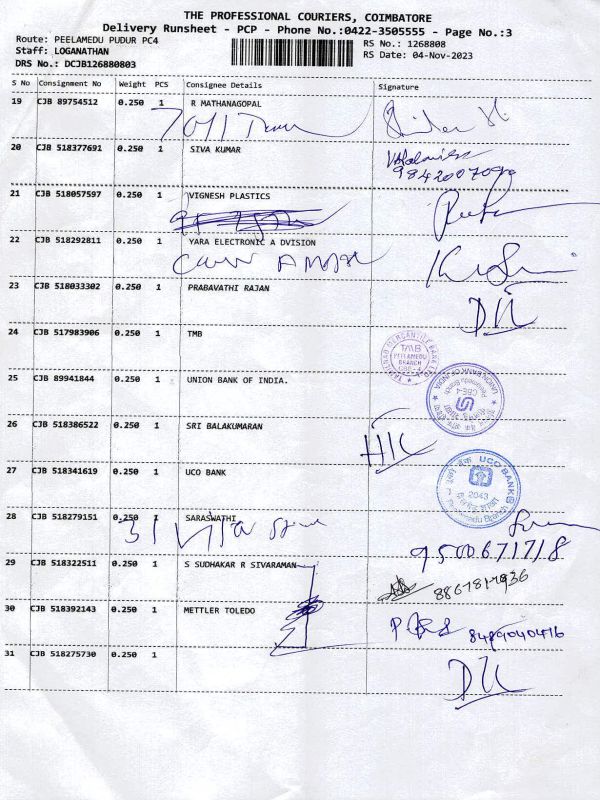 THE PROFESSIONAL COURIERS, COIMBATORE
Delivery Runsheet - PCP - Phone No.:0422-3505555 - Page No.:3
Route: PEELAMEDU PUDUR PC4
RS No.: 1268808
Staff: LOGANATHAN
RS Date: 04-Nov-2023
DRS No.: DCJB126880803
S No Consignment No Weight PCS Consignee Details Signature
19 CJB 89754512 0.250 1 R MATHANAGOPAL
20 CJB 518377691 0.250 1 SIVA KUMAR
21 CJB 518057597 0.250 1 VIGNESH PLASTICS
22 CJB 518292811 0.250 1 YARA ELECTRONIC A DVISION
23 CJB 518033302 0.250 1 PRABAVATHI RAJAN
24 CJB 517983906 0.250 1 TMB
TMB
PEELAMEDU
BRANCH
CBE-4
25 CJB 89941844 0.250 1 UNION BANK OF INDIA.
UNION BANK OF INDIA
26 CJB 518386522 0.250 1 SRI BALAKUMARAN
27 CJB 518341619 0.250 1 UCO BANK
UCO BANK
2043
Peelamedu Branch
28 CJB 518279151 0.250 1 SARASWATHI
9500671718
29 CJB 518322511 0.250 1 S SUDHAKAR R SIVARAMAN
30 CJB 518392143 0.250 1 METTLER TOLEDO
31 CJB 518275730 0.250 1